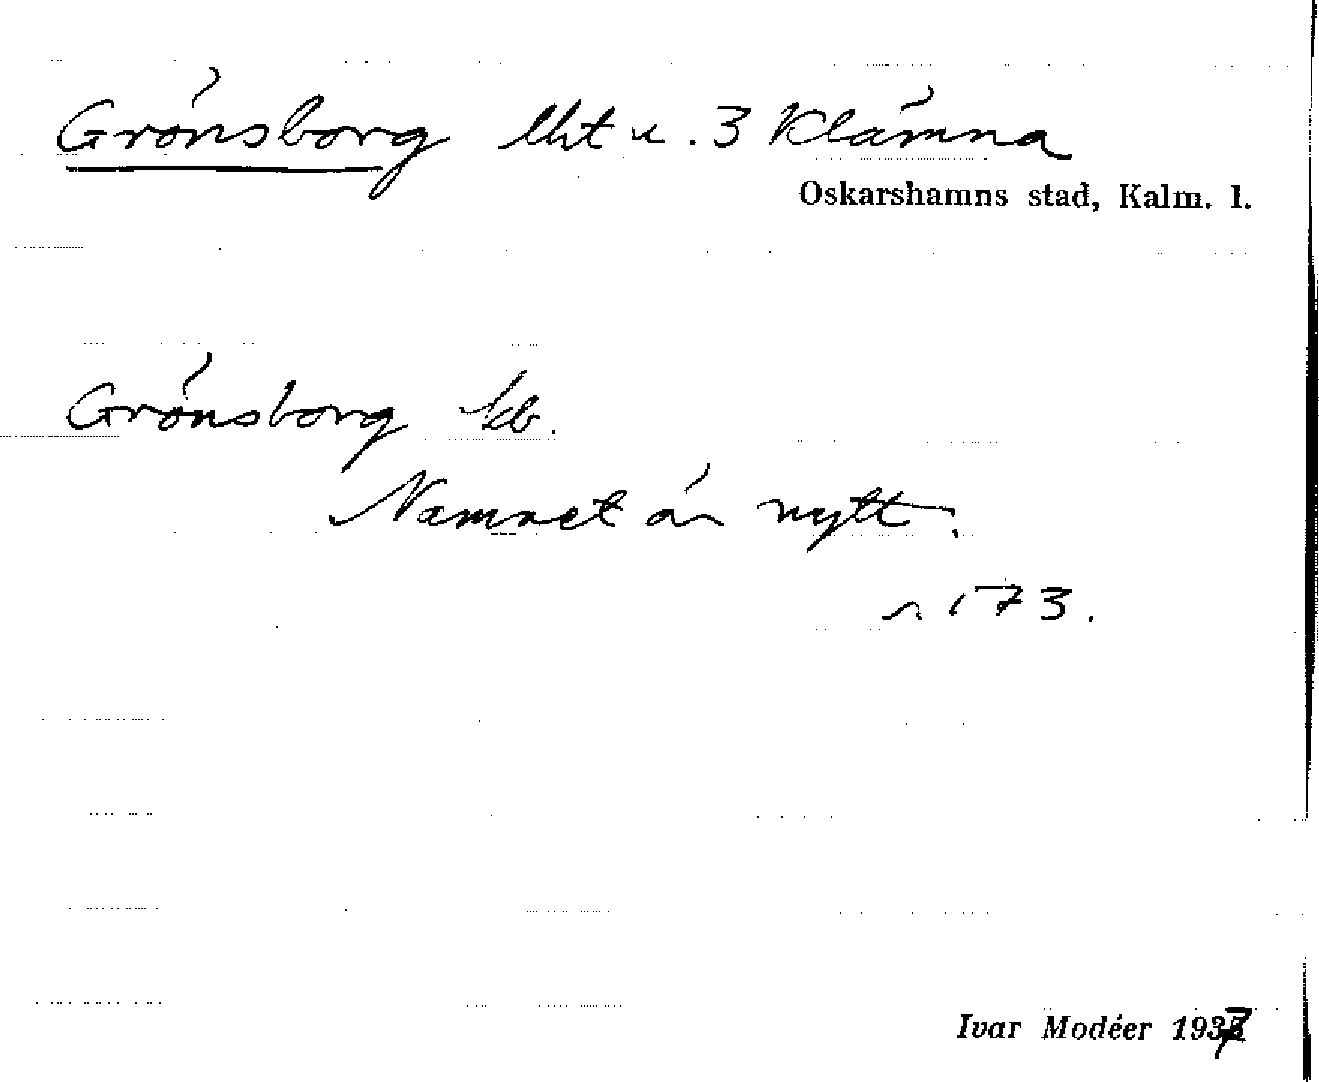 Grönsborg lht u. 3 Klämna
Oskarshamns stad, Kalm. l.
Grönsborg kb.
Namnet är nytt.
s. 173.
Ivar Modéer 1937